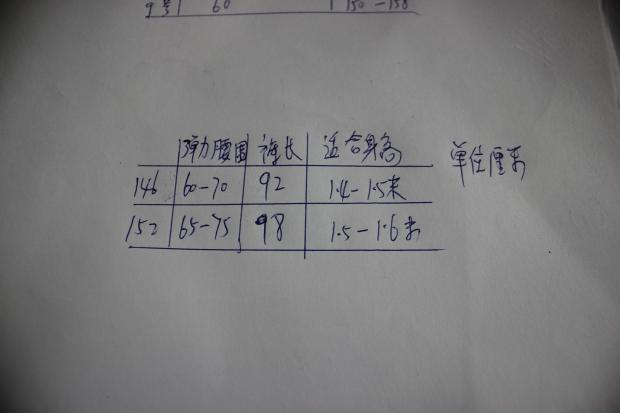 9号 60 150-158
弹力腰围 裤长 适合身高 单位厘米
146 60-70 92 1.4-1.5米
152 65-75 98 1.5-1.6米